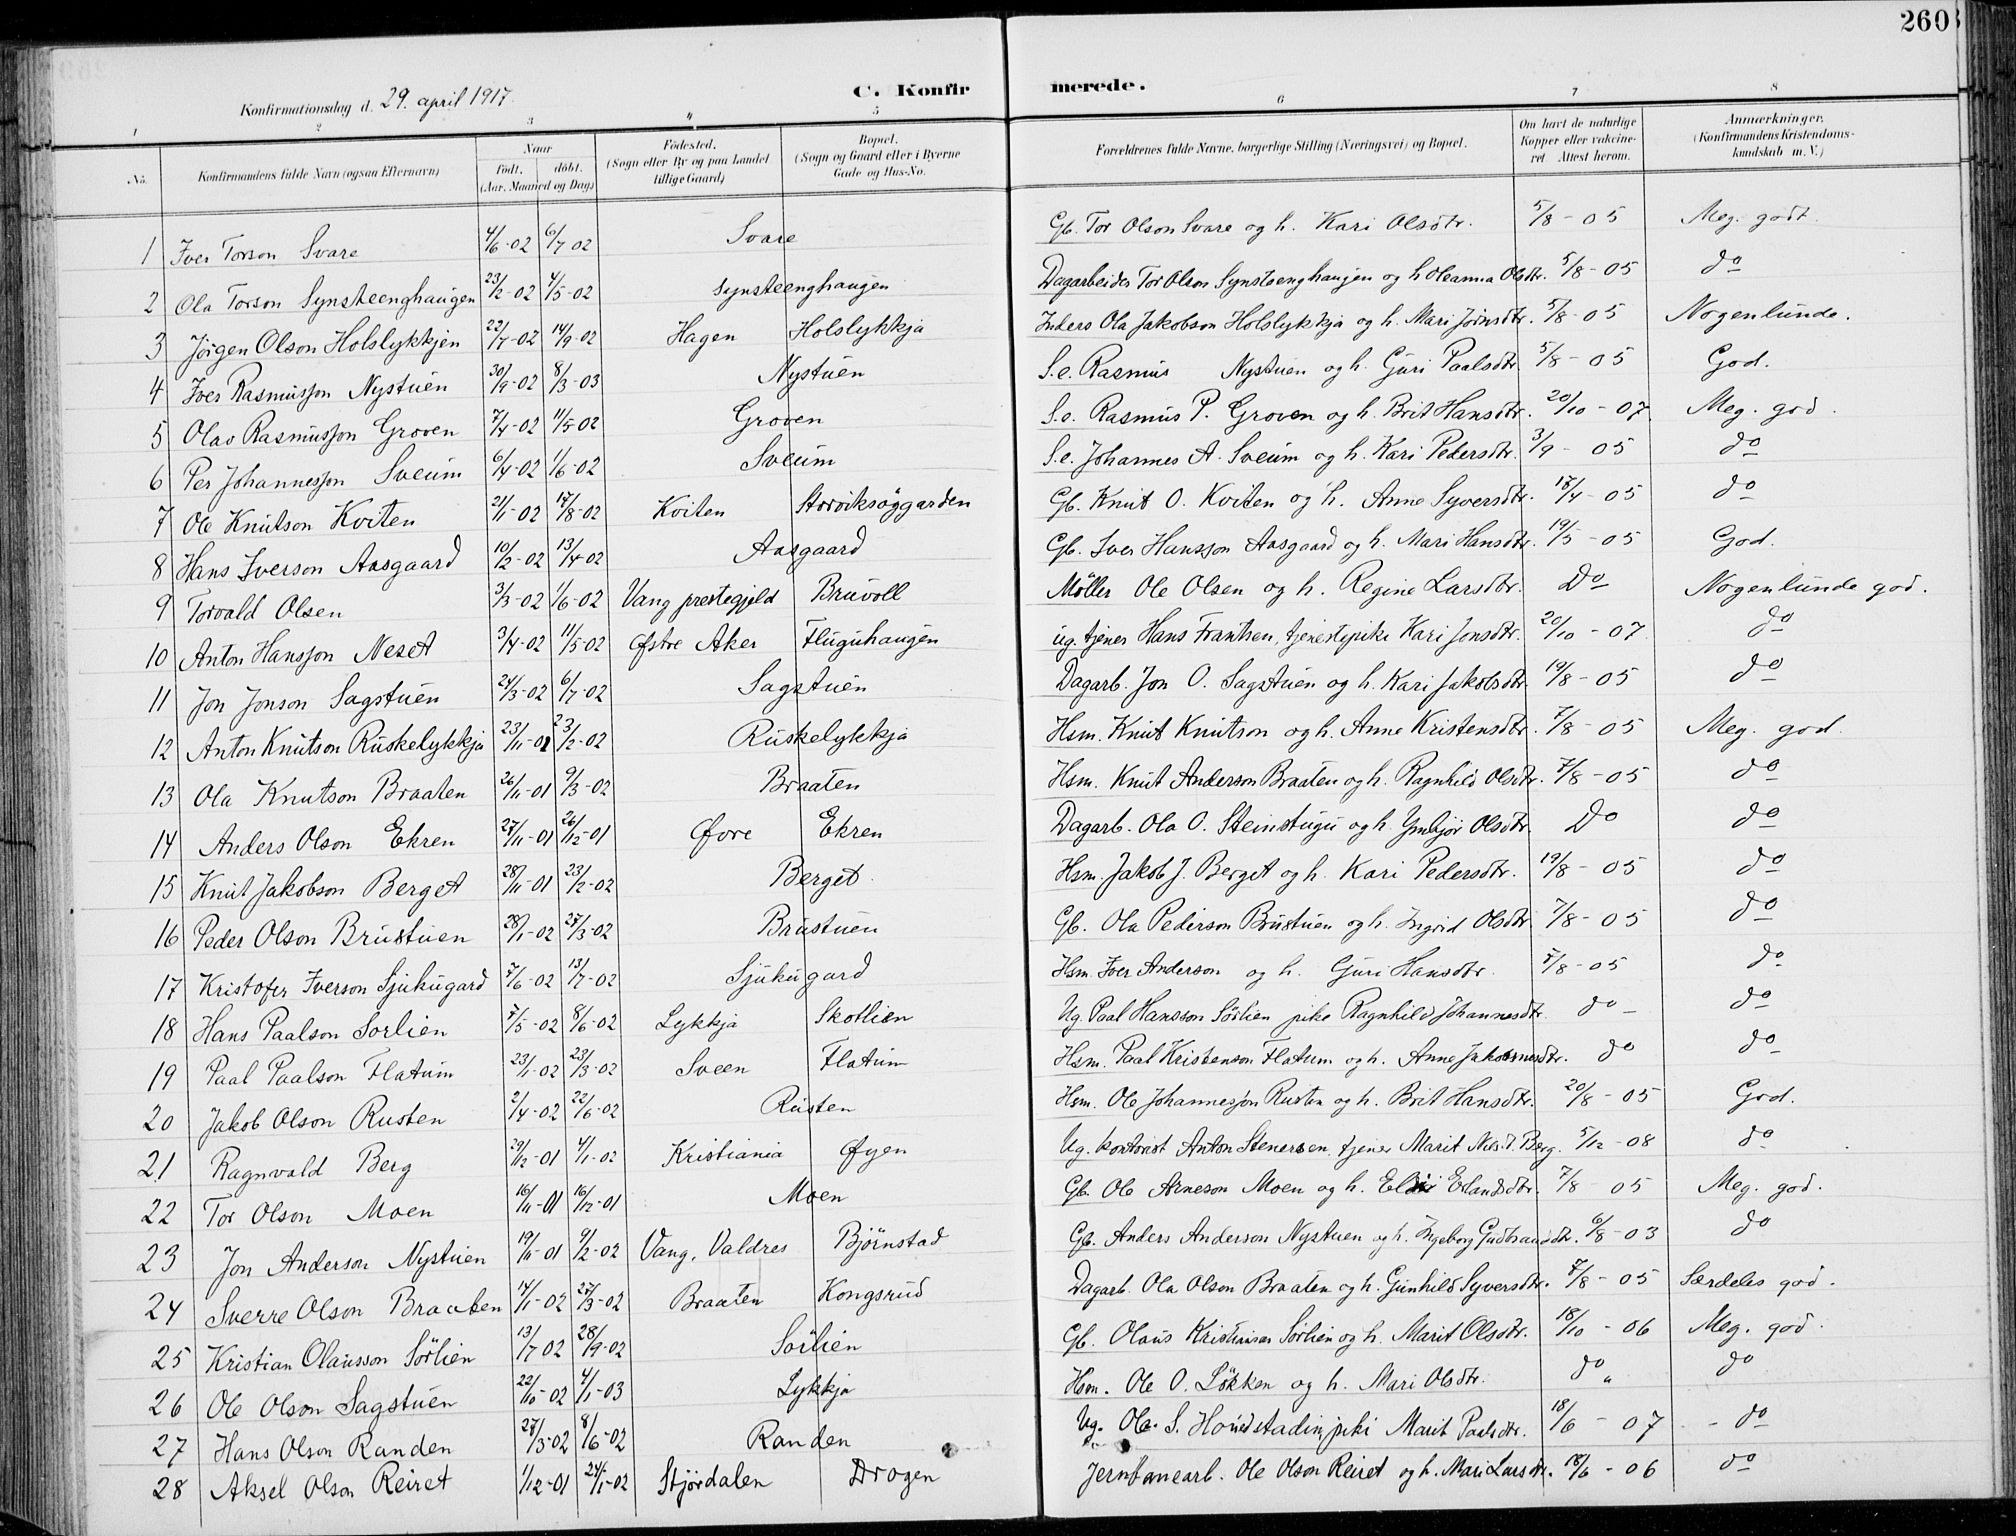 260
Konfirmationsdag d. 29. april 1917.
C. Konfirmerede.
1 2 3 4 5 6 7 8
No. Konfirmandens fulde Navn (ogsaa Efternavn) Naar født. døbt. (Aar, Maaned og Dag) Fødested. (Sogn eller By og paa Landet tillige Gaard) Bopæl. (Sogn og Gaard eller i Byerne Gade og Hus-No. Forældrenes fulde Navne, borgerlige Stilling (Næringsvei) og Bopæl. Om havt de naturlige Kopper eller vakcineret Attest herom. Anmærkninger. (Konfirmandens Kristendomskundskab m. V.)
1 Iver Torson Svare 4/6-02 6/7 02 Svare Gb. Tor Olson Svare og h. Kari Olsdtr. 5/8-05 Meg. godt
2 Ola Torson Synsteenghaugen 23/2-02 4/5-02 Synsteenghaugen Dagarbeider Tor Olson Synsteenghaugen og h Oleanna Olsdtr. 5/8-05 do
3 Jørgen Olson Holslykkjen 22/7-02 14/9-02 Hagen Holslykkja Inders Ola Jakobson Holslykkja og h. Mari Joinsdtr. 5/8-05 Nogenlunde.
4 Iver Rasmusson Nystuen 30/9-02 8/3-03 Nystuen S.e. Rasmus Nystuen og h. Guri Paalsdtr 5/8-05 God.
5 Olav Rasmusson Groven 7/4-02 11/5-02 Groven S.e. Rasmus P. Groven og h. Brit Hansdtr. 20/10-07 Meg. god.
6 Per Johannesson Sveum 6/4-02 1/6-02 Sveum S.e. Johannes A. Sveum og h. Kari Pedersdtr. 3/9-05 do
7 Ole Knutson Kviten 21/11-02 17/8-02 Kviten Storviksøggarden Gb. Knut O. Kviten og h. Anne Syversdtr. 18/4-05 do
8 Hans Iverson Aasgaard 10/2-02 13/4-02 Aasgaard Gb. Iver Hansson Aasgaard og h. Mari Hansdtr. 19/5-05 God.
9 Torvald Olsen 3/3-02 1/6-02 Vang prestegjeld Bruvoll Møller Ole Olsen og h. Regine Larsdtr. Do Nogenlunde god.
10 Anton Hansson Neset 3/4-02 11/5-02 Østre Aker Fluguhaugen ug. tjener Hans Frantsen, tjenestepike Kari Jonsdtr. 20/10-07 do
11 Jon Jonson Sagstuen 24/3-02 6/7-02 Sagstuen Dagarb. Jon O. Sagstuen og h. Kari Jakobsdtr 19/8-05 do
12 Anton Knutson Ruskelykkja 23/11-01 23/2-02 Ruskelykkja Hsm. Knut Knutson og h. Anne Kristensdtr. 7/8-05 Meg. god.
13 Ola Knutson Braaten 26/11-01 9/3-02 Braaten Hsm. Knut Anderson Braaten og h. Ragnhild Olsdtr. 7/8-05 do
14 Anders Olson Ekren 27/11-01 26/12-01 Øvre Ekren Dagarb. Ola O. Steinstugu og h. Ymbjør Olsdtr. Do do
15 Knut Jakobson Berget 28/11-01 23/2-02 Berget Hsm. Jakob J. Berget og h. Kari Pedersdtr. 19/8-05 do
16 Peder Olson Brustuen 28/1-02 27/3-02 Brustuen Gb. Ola Pederson Brustuen og h. Ingrid Olsdtr 7/8-05 do
17 Kristofer Iverson Sjukugard 7/6-02 13/7-02 Sjukugard Hsm. Iver Anderson og h. Guri Hansdtr. 7/8-05 do
18 Hans Paalson Sørlien 7/5-02 8/6-02 Lykkja Skotlien Ug. Paal Hansson Sørlien pike Ragnhild Johannesdtr. do do
19 Paal Paalson Flatum 23/1-02 23/3-02 Sveen Flatum Hsm. Paal Kristenson Flatum og h. Anne Jakobsdtr. do do
20 Jakob Olson Rusten 2/4-02 22/6-02 Rusten Hsm. Ole Johannesson Rusten og h. Brit Hansdtr. 20/8-05 God.
21 Ragnvald Berg 29/12-01 4/1-02 Kristiania Øyen Ug. kontorist Anton Stenersen, tjener Marit Nils d. Berg. 5/12-08 do
22 Tor Olson Moen 16/11-01 16/12-01 Moen Gb. Ole Arneson Moen og h. Eldri Erlandsdtr. 7/8-05 Meg. god.
23 Jon Anderson Nystuen 19/11-01 9/2-02 Vang, Valdres Bjørnstad Gb. Anders Anderson Nystuen og h. Ingeborg Gudbrandsdtr. 6/8-03 do
24 Sverre Olson Braaten 14/1-02 27/3-02 Braaten Kongsrud Dagarb. Ola Olson Braaten og h. Gunhild Syversdtr. 7/8-05 Særdeles god.
25 Kristian Olausson Sørlien 13/7 02 28/9-02 Sørlien Gb. Olaus Kristiansen Sørlien og h. Marit Olsdtr. 18/10-06 Meg. god.
26 Ole Olson Sagstuen 22/10-02 4/1-03 Lykkja Hsm. Ole O. Løkken og h. Mari Olsdtr. do do
27 Hans Olson Randen 27/3-02 8/6-02 Randen Ug. Ole S. pike Marit Paalsdtr. 18/6-07 do
28 Aksel Olson Reiret 1/12-01 24/1-02 Stjørdalen Drogen Jernbanearb. Ole Olson Reiret og h. Mari Larsdtr. 18/6-06 do